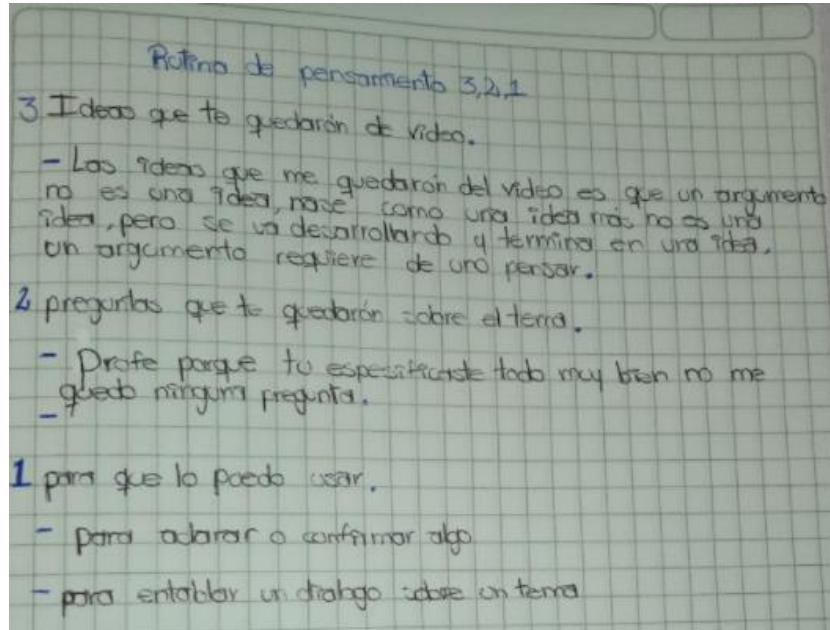 Rutina de pensamiento 3,2,1
3 Ideas que te quedarón de video.
- Las ideas que me quedarón del video es que un argumento
no es una idea, nase como una idea más no es una
idea, pero se va desarrollando y termina en una idea.
un argumento requiere de uno pensar.
2 preguntas que te quedarón sobre el tema.
- Profe porque tu especificaste todo muy bien no me
quedo ninguna pregunta.
-
1 para que lo puedo usar.
- para aclarar o confirmar algo
- para entablar un dialogo sobre un tema